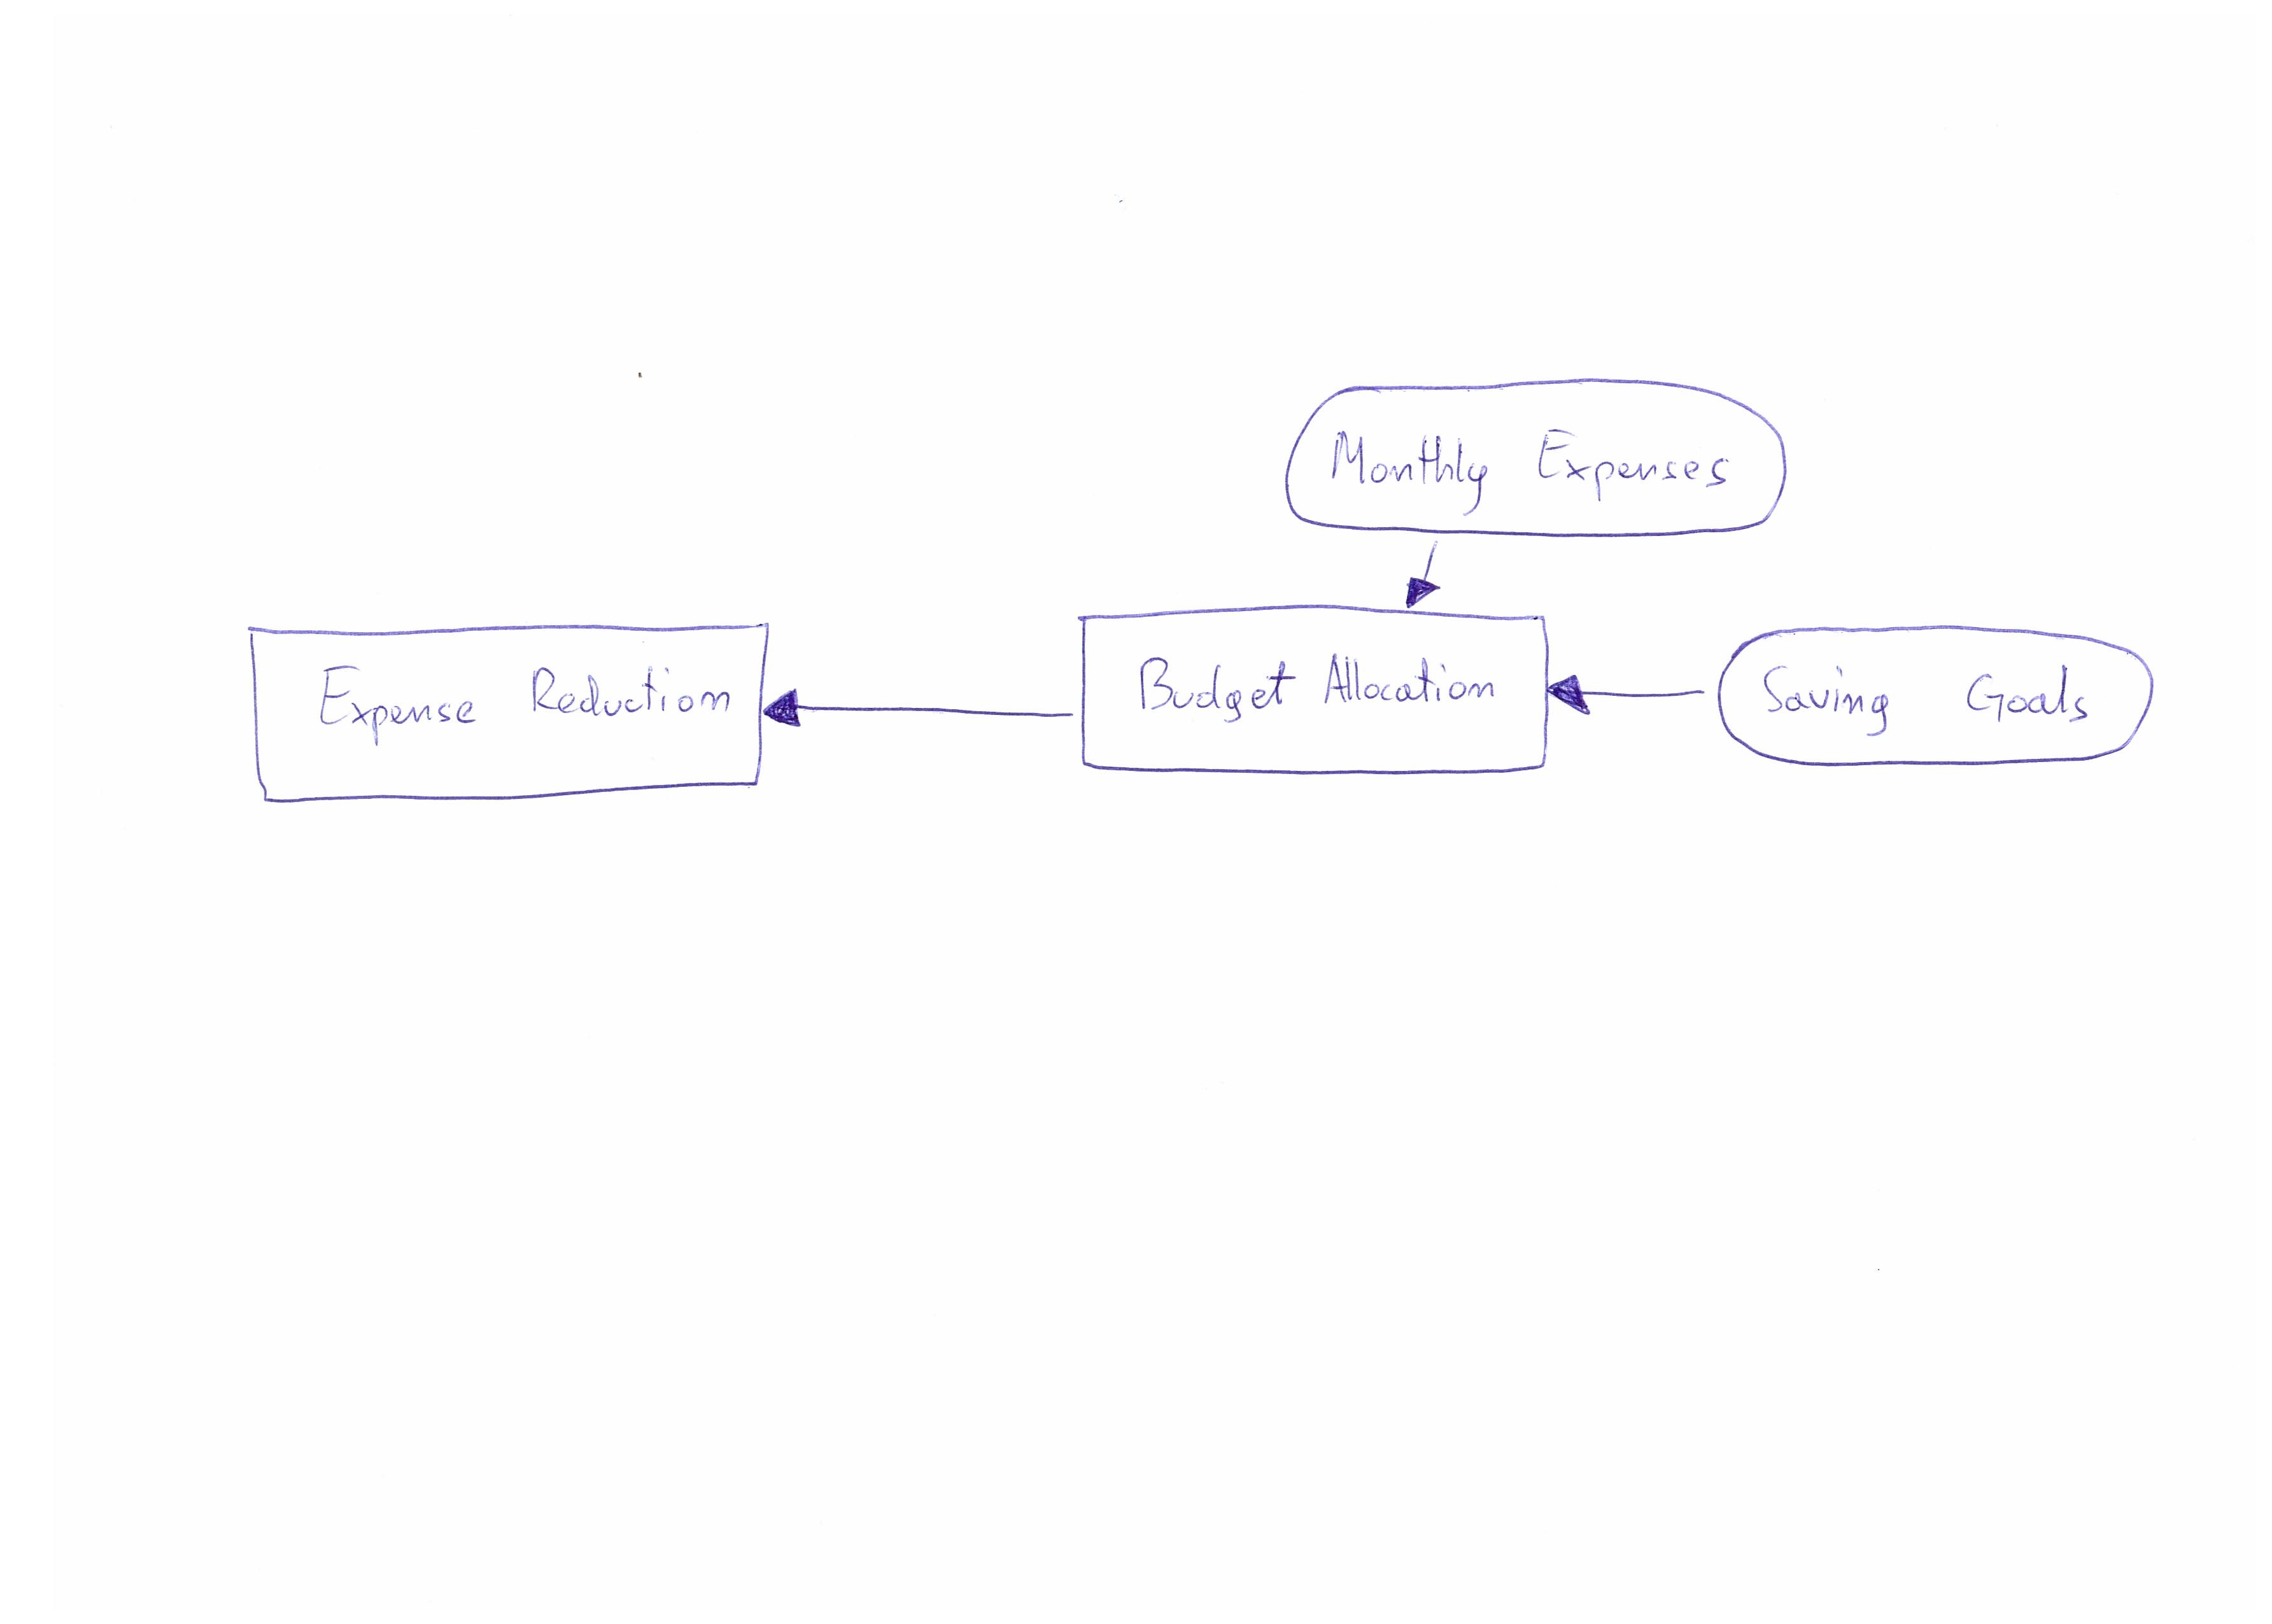 Monthly Expenses
Expense Reduction
Budget Allocation
Saving Goals